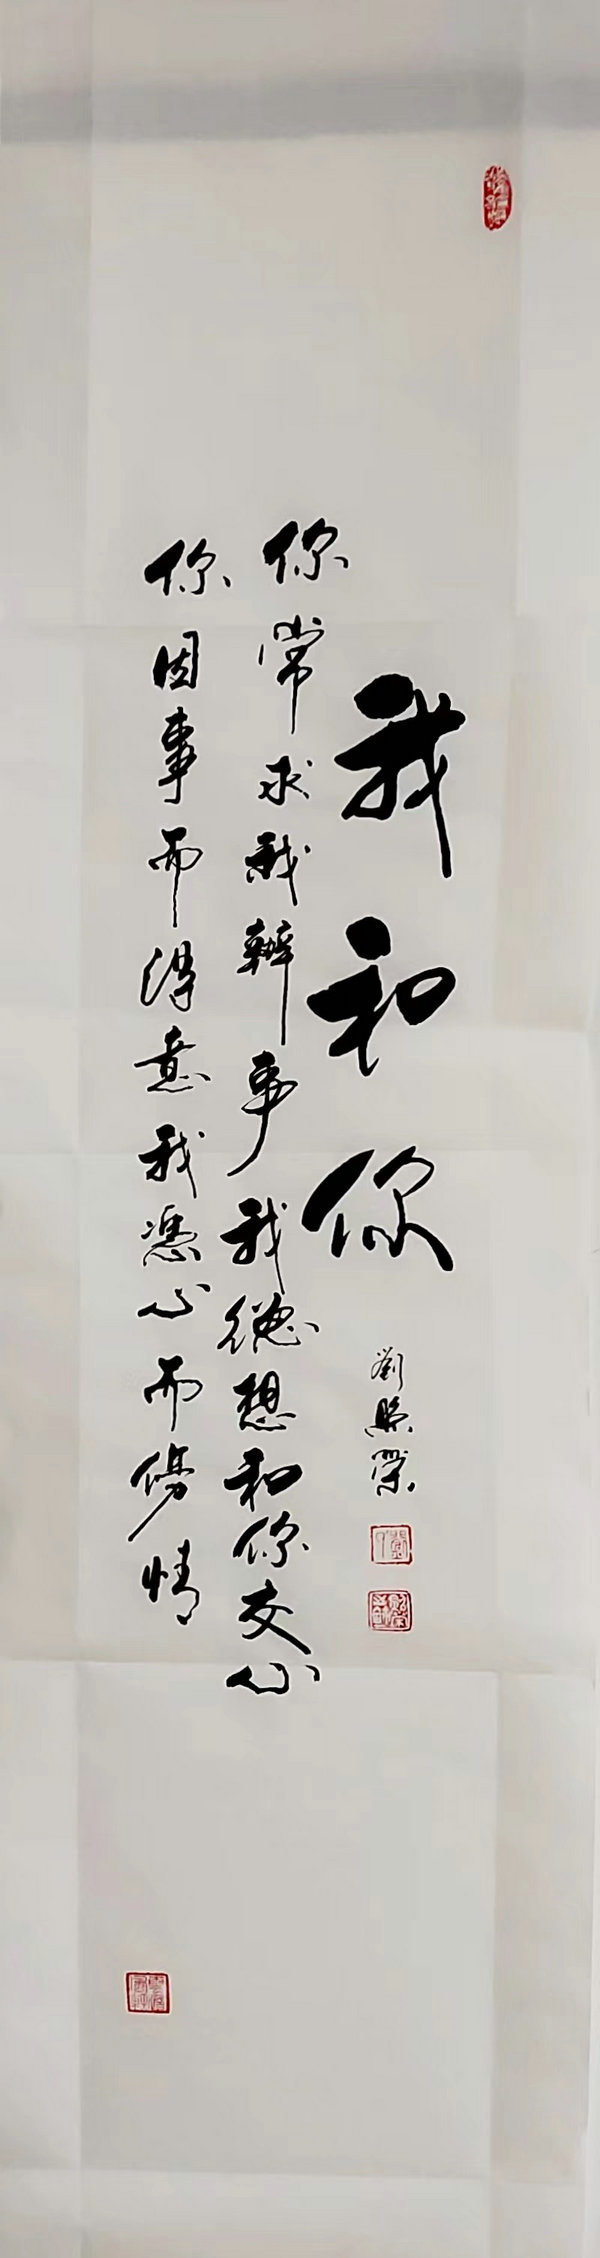 我和你
劉照榮
你常求我辦事我總想和你交心
你因事而得意我憑心而傷情